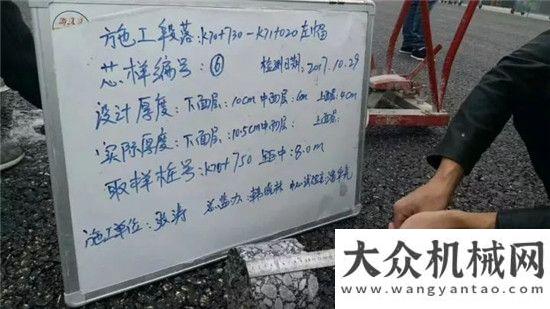 施工段落:K70+730-K71+020左幅
芯样编号:⑥ 检测日期:2017.10.29
设计厚度:下面层:10cm中面层:6cm 上面层:4cm
实际厚度:下面层:10.5cm中面层: 上面层:
取样桩号:K70+750 距中:8.0m
施工单位:张涛 总监办:韩 中心试验室:潘
大众机械网
www.wangyantao.com